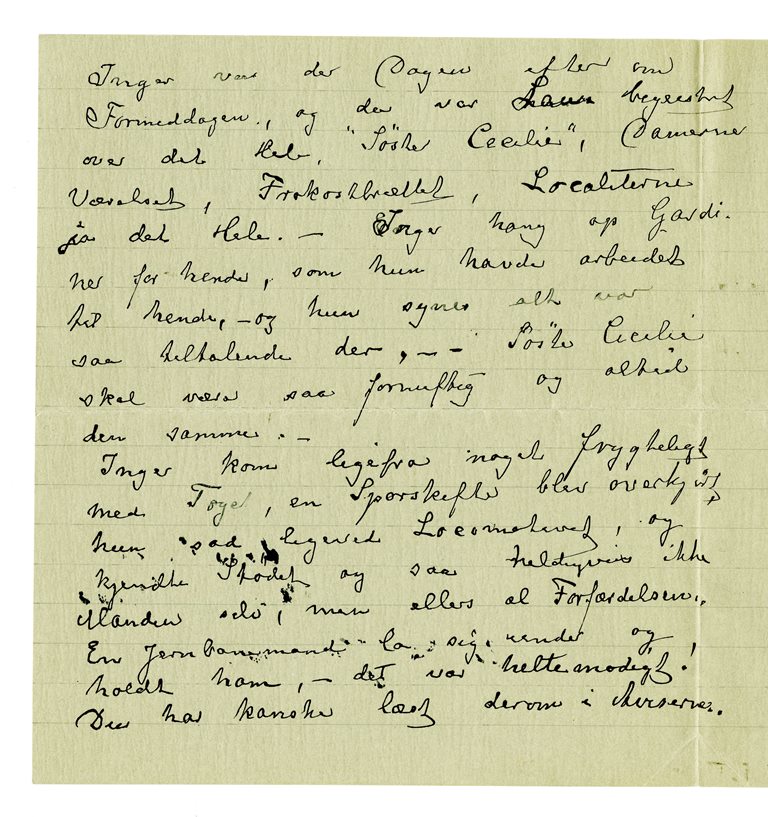 Inger var der Dagen efter om
Formeddagen., og der var begeistret
over det Hele, "Søster Cecilie", Damerne
Værelset, Frokostbrættet, Localiterne
ja det Hele. — Inger hang op Gardi-
ner for hende, som hun havde arbeidet
til hende, — og hun synes alt var
saa tiltalende der, — — Søster Cecilie
skal være saa fornuftig og altid
den samme. —
Inger kom ligefra noget frygteligt
med Toget, en Sporskifter blev overkjørt,
hun sad ligeved Locomotivet, og
kjendte Stødet og saa heldigvis ikke
Manden selv, men ellers al Forfærdelsen.
En Jernbanemand la sig under og
holdt ham, — det var heltemodigt!
Du har kanske læst derom i Aviserne.